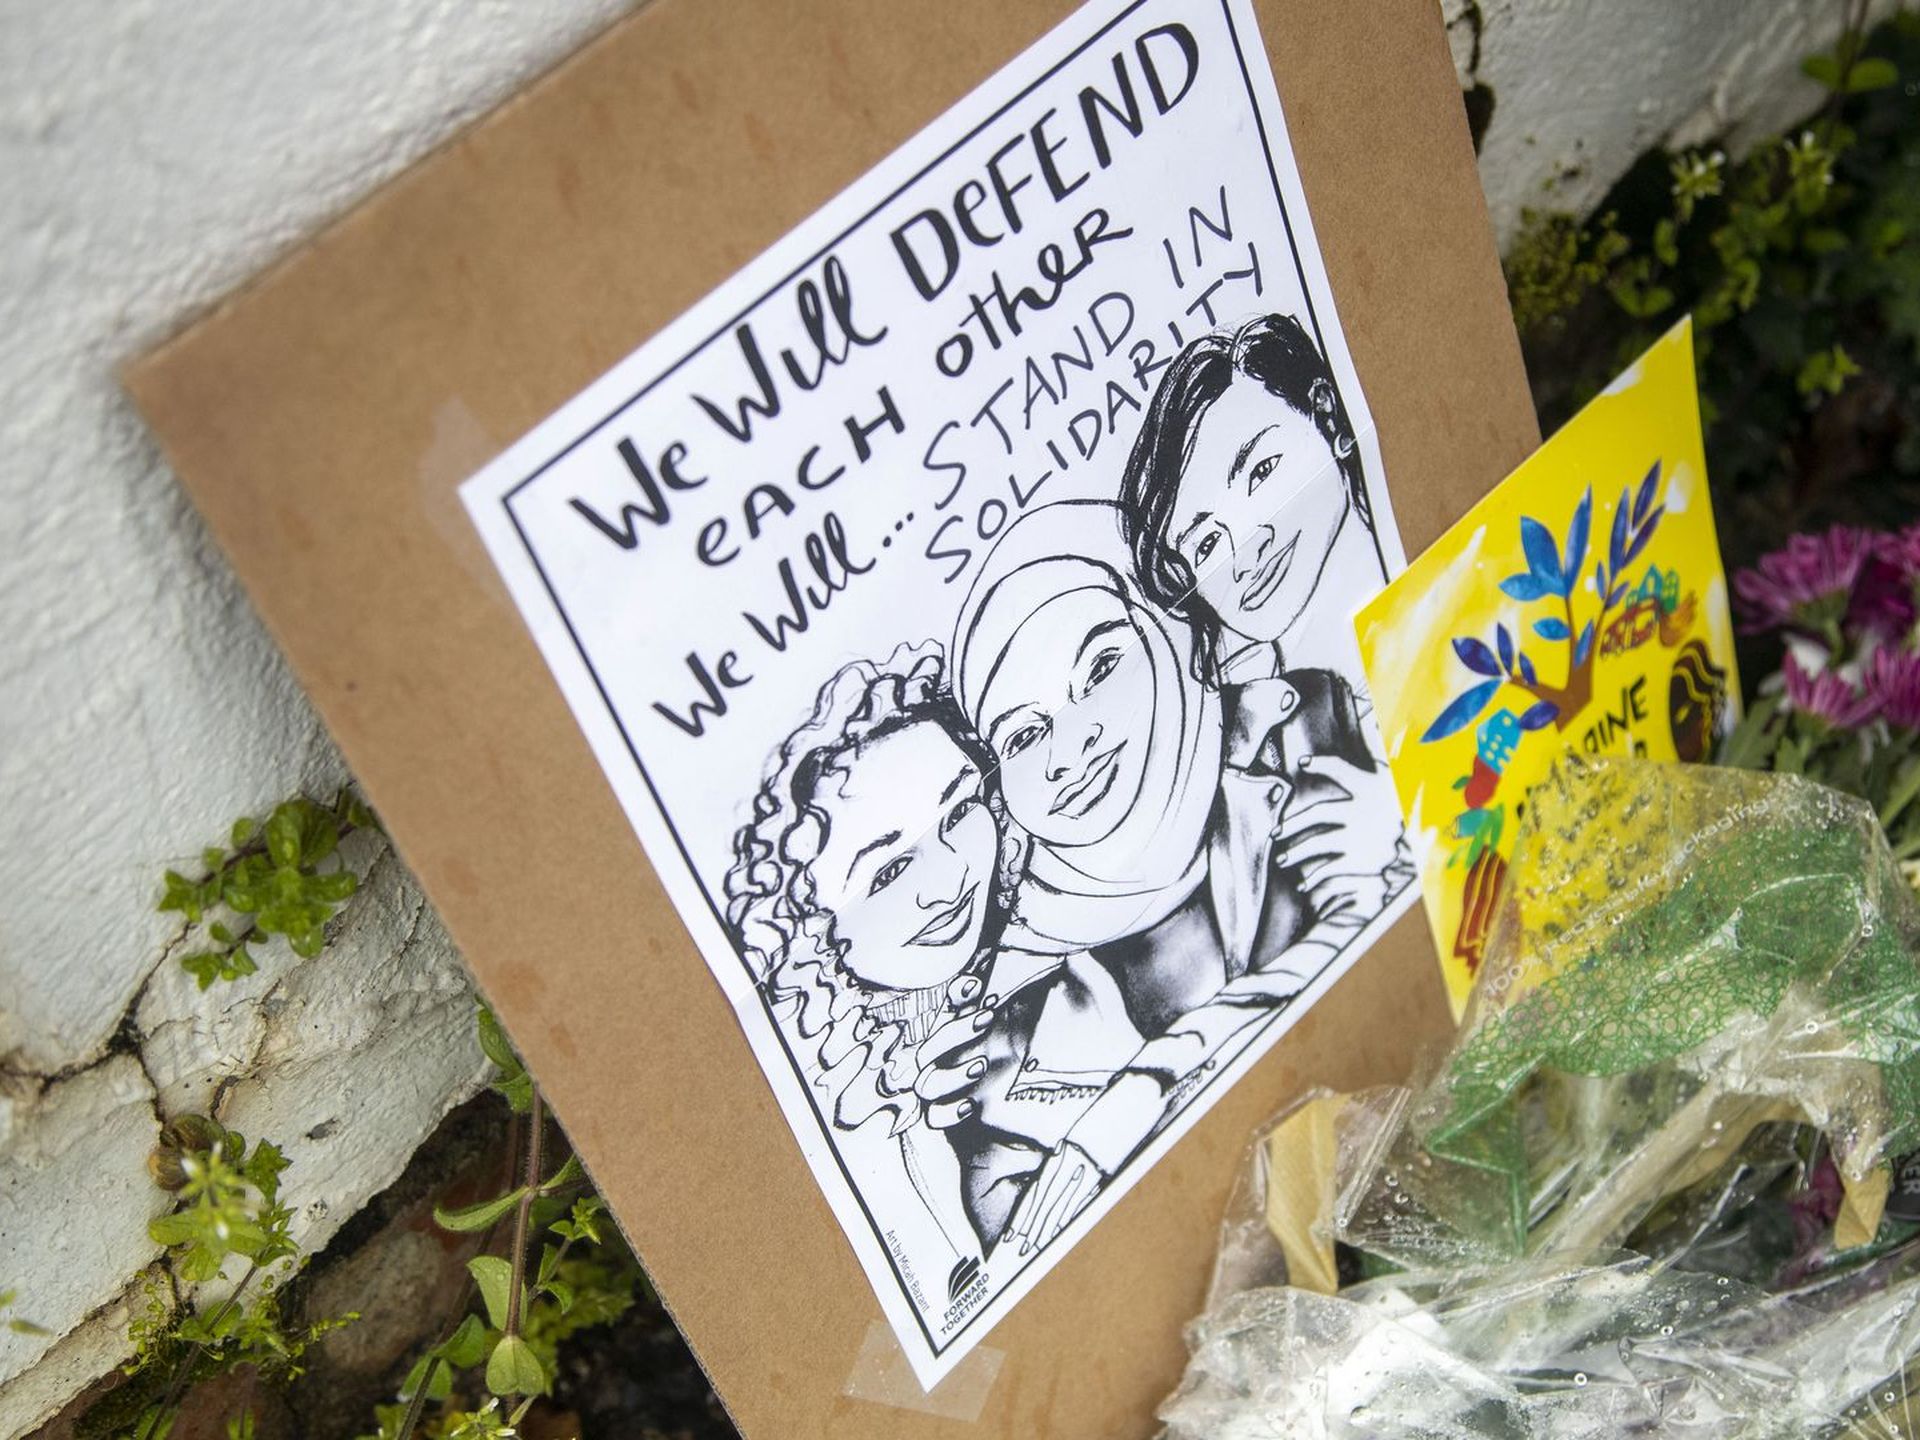 We Will DeFEND
eACH otheR
We Will... STAND IN
SOLIDARITY
Art by Micah Bazant
FORWARD
TOGETHER
100%
packaging